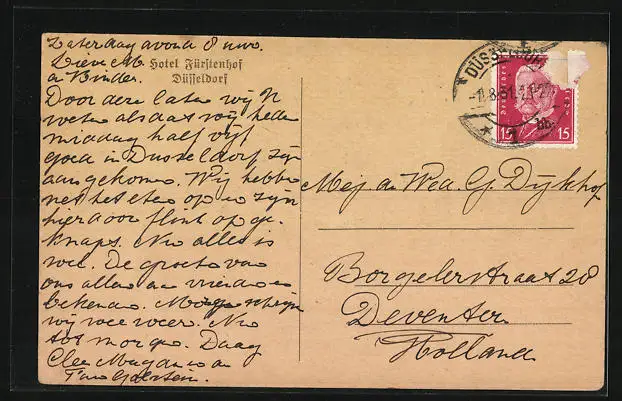 Zaterdag avond 8 uur.
Lieve M.
en Kinder.
Hotel Fürstenhof
Düsseldorf
Door deze laten wij U
weten als dat wij heden
middag half vijf
goed in Dusseldorf zijn
aangekomen. Wij hebben
net het eten op en zijn
hierdoor flink op ge-
knapt. Nu alles is
wel. De groeten van
ons allen en vrienden en
bekenden. Morgen schrijven
wij wel weer. Nu
tot morgen. Daag
DÜSSELDORF
15 15
Mej de Wed. G. Dijkhof
Borgelerstraat 28
Deventer
Holland